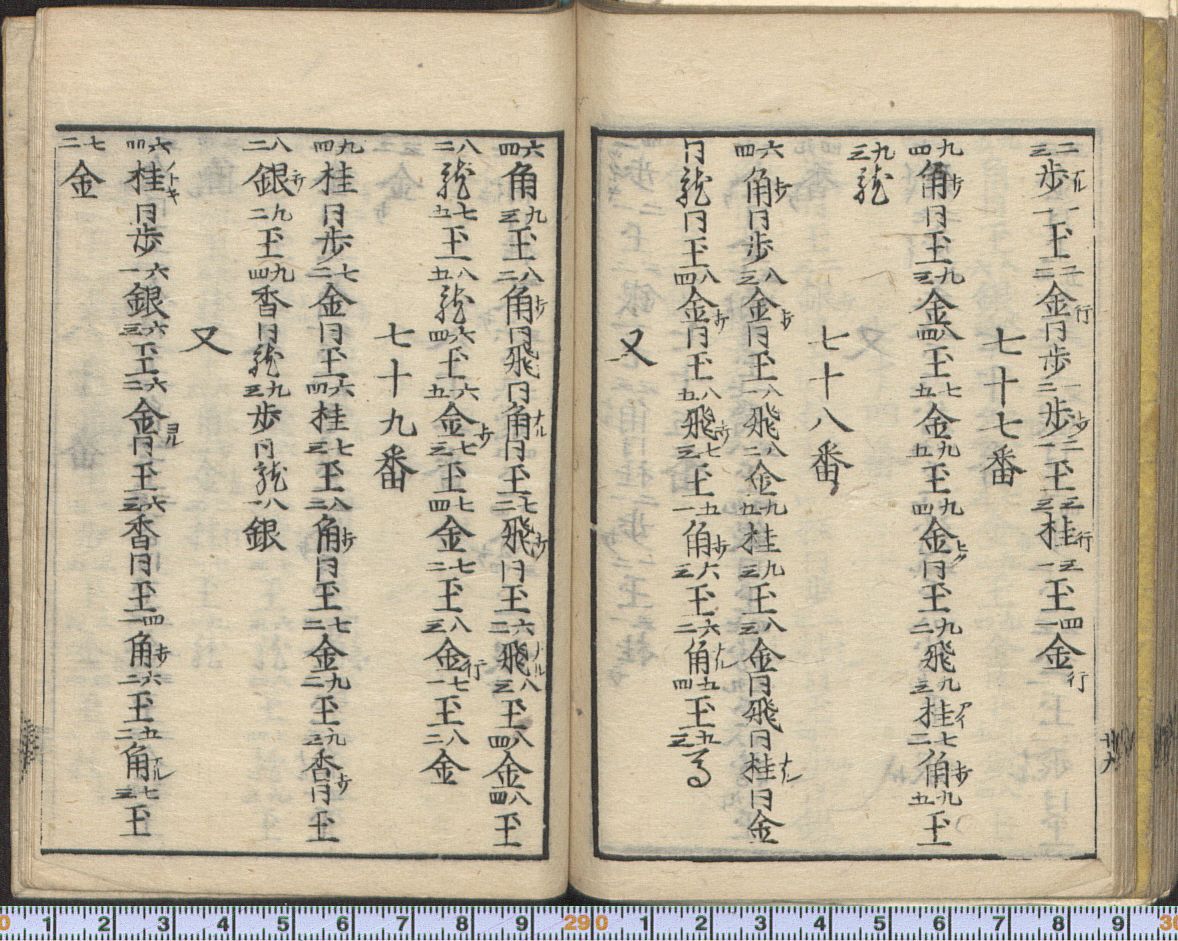 二三歩ナル一一王二二金行同歩二二歩打二一王三三桂行三一王四一金行
七十七番
九四角打同王九三金八四王七五金九五王九四金ヒク同王九二飛九三桂アイ七二角打九五王
九三龍
七十八番
六四角打同歩八三金打同王八一飛八二金九五桂九三王八三金同飛同桂ナル同金
同龍同王八四金打同王八五飛打七三王五一角打六三王六二角ナル五四王五三馬
又
廿六
六四角九三王八二角打同飛同角ナル同王七二飛打同王六二飛ナル八三王八四金八四王
八二龍七五王八五龍六四王六五金打七三王七四金七二王八三金行七一王八二金
七十九番
九四桂同歩七二金同王六四桂七三王八二角打同王七二金九二王九三香打同王
八二銀打九二王九四香同龍九三歩同龍八一銀
又
六四桂ノトキ同歩六一銀六三王六二金ヨル同王六三香同王四一角打六二王五二角ナル七三王
七二金